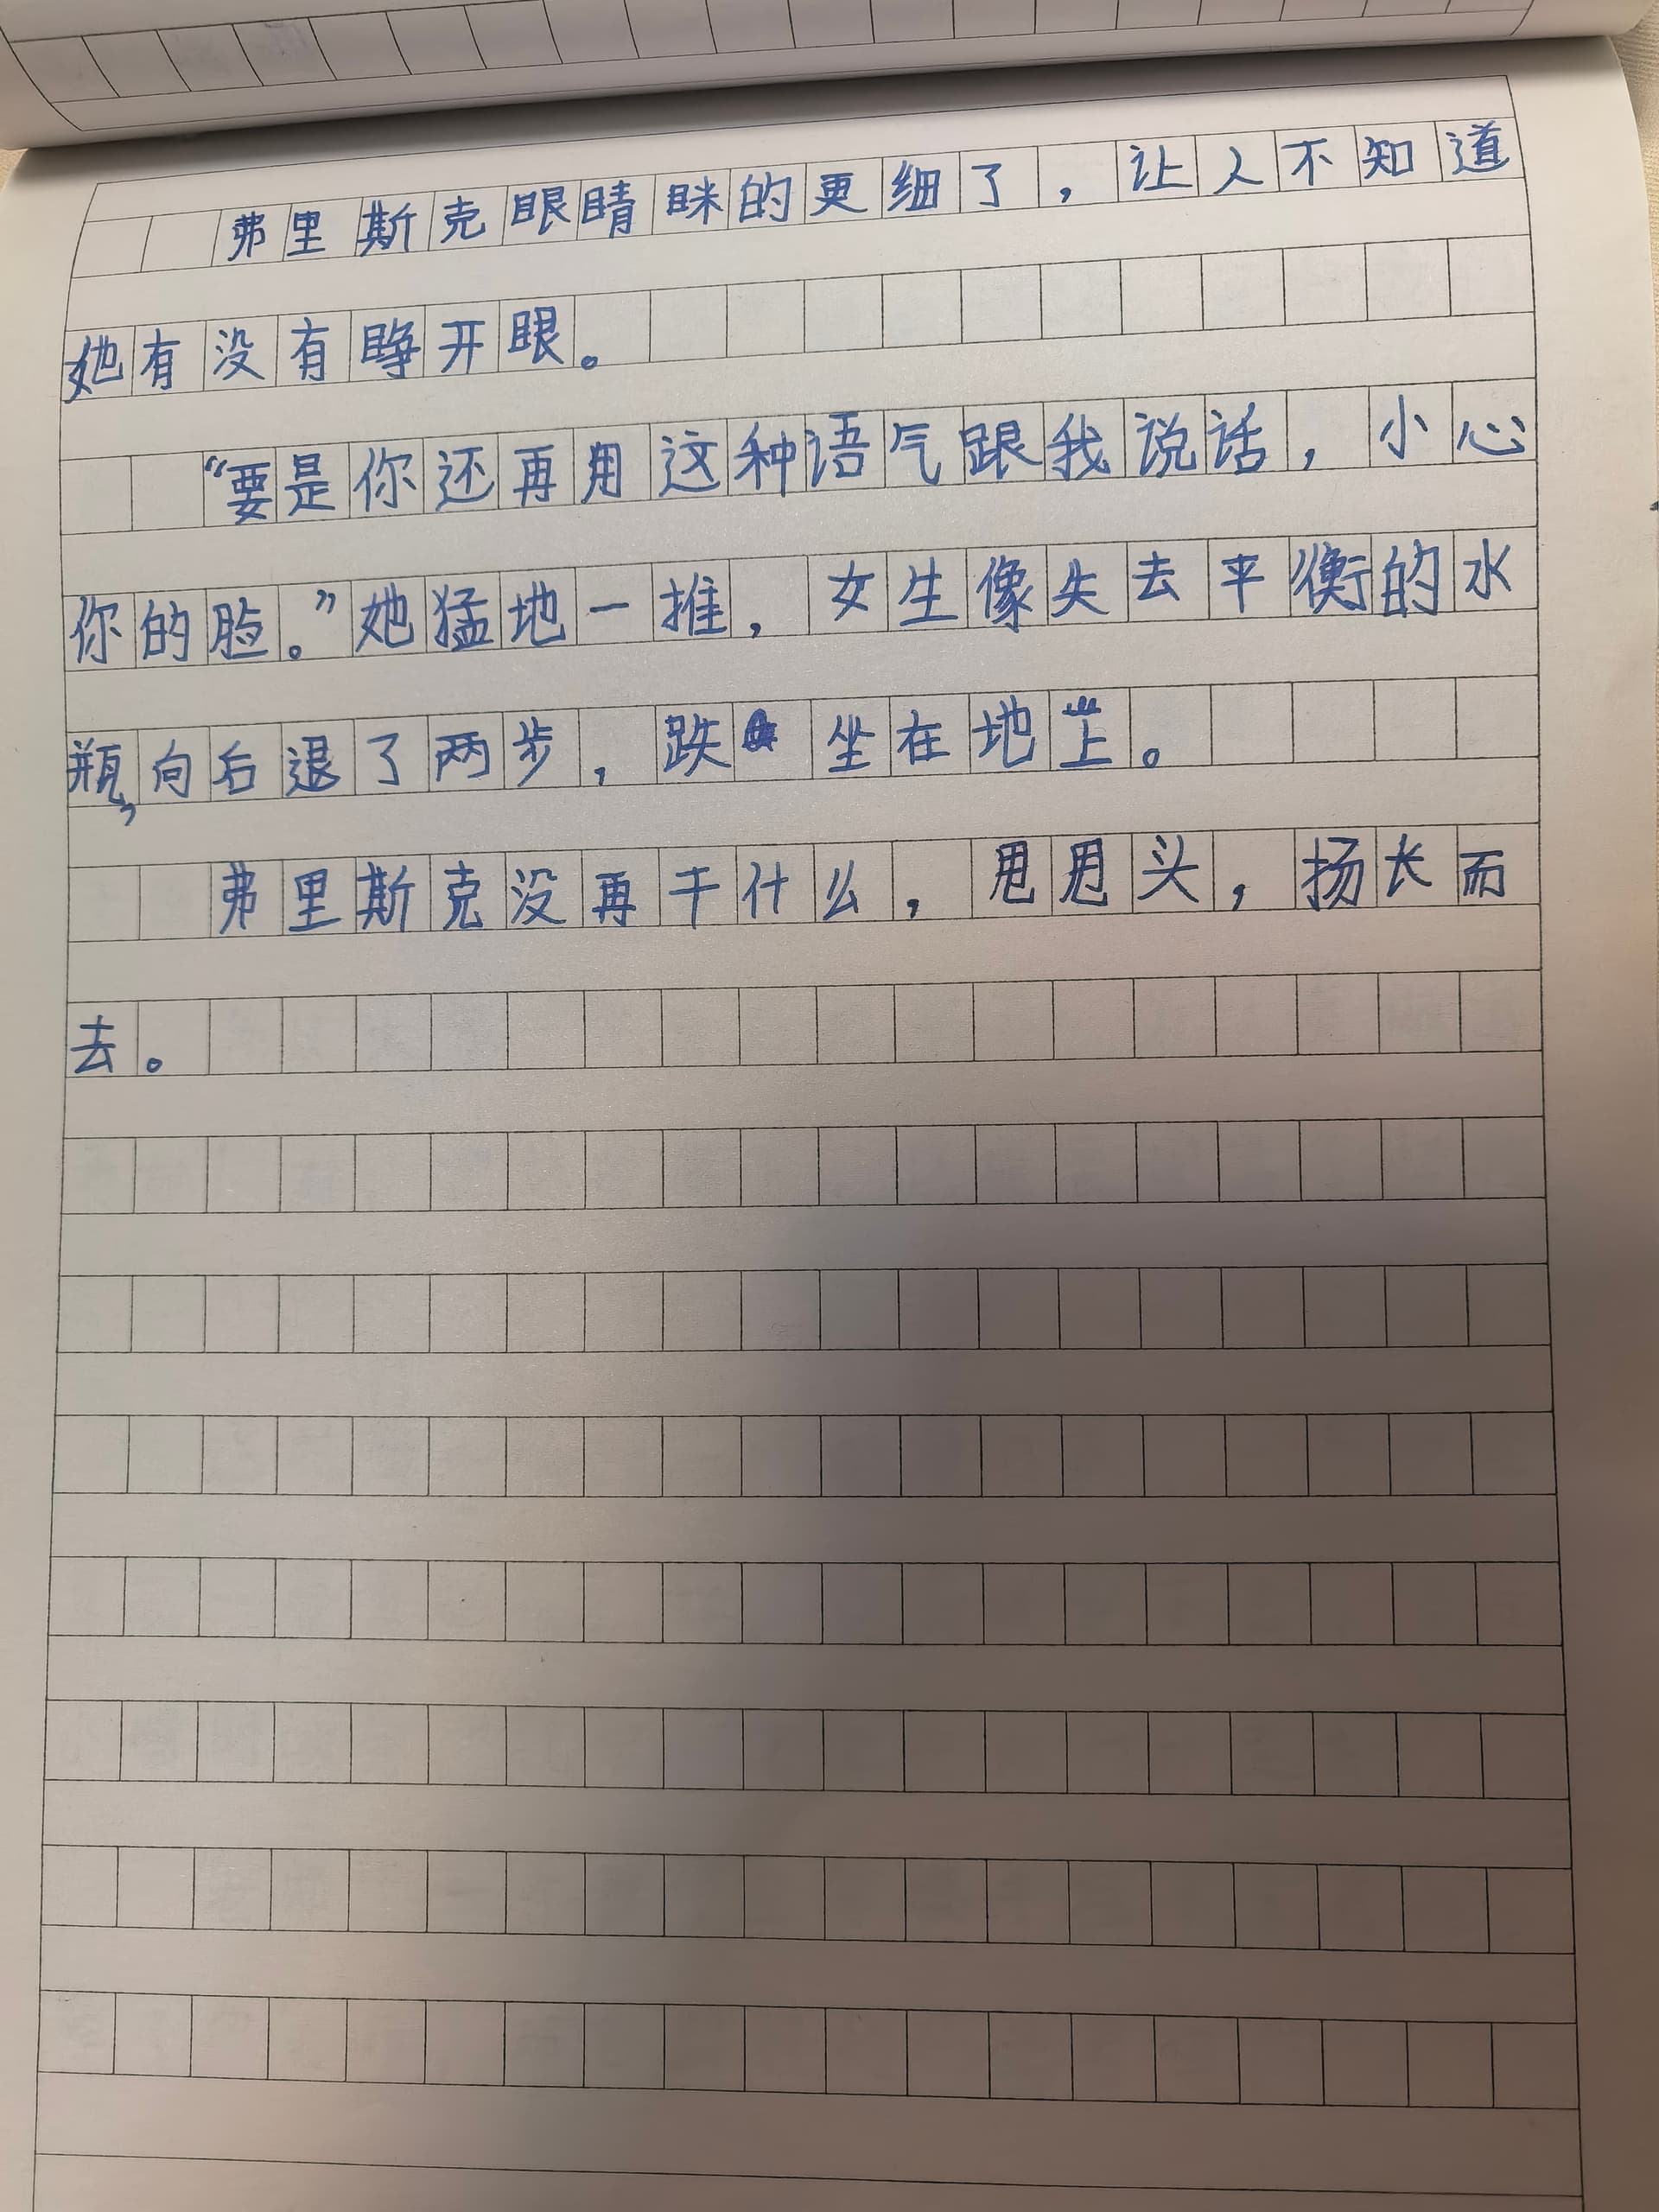 弗里斯克眼睛眯的更细了，让人不知道
她有没有睁开眼。
“要是你还再用这种语气跟我说话，小心
你的脸。”她猛地一推，女生像失去平衡的水
瓶，向后退了两步，跌坐在地上。
弗里斯克没再干什么，甩甩头，扬长而
去。